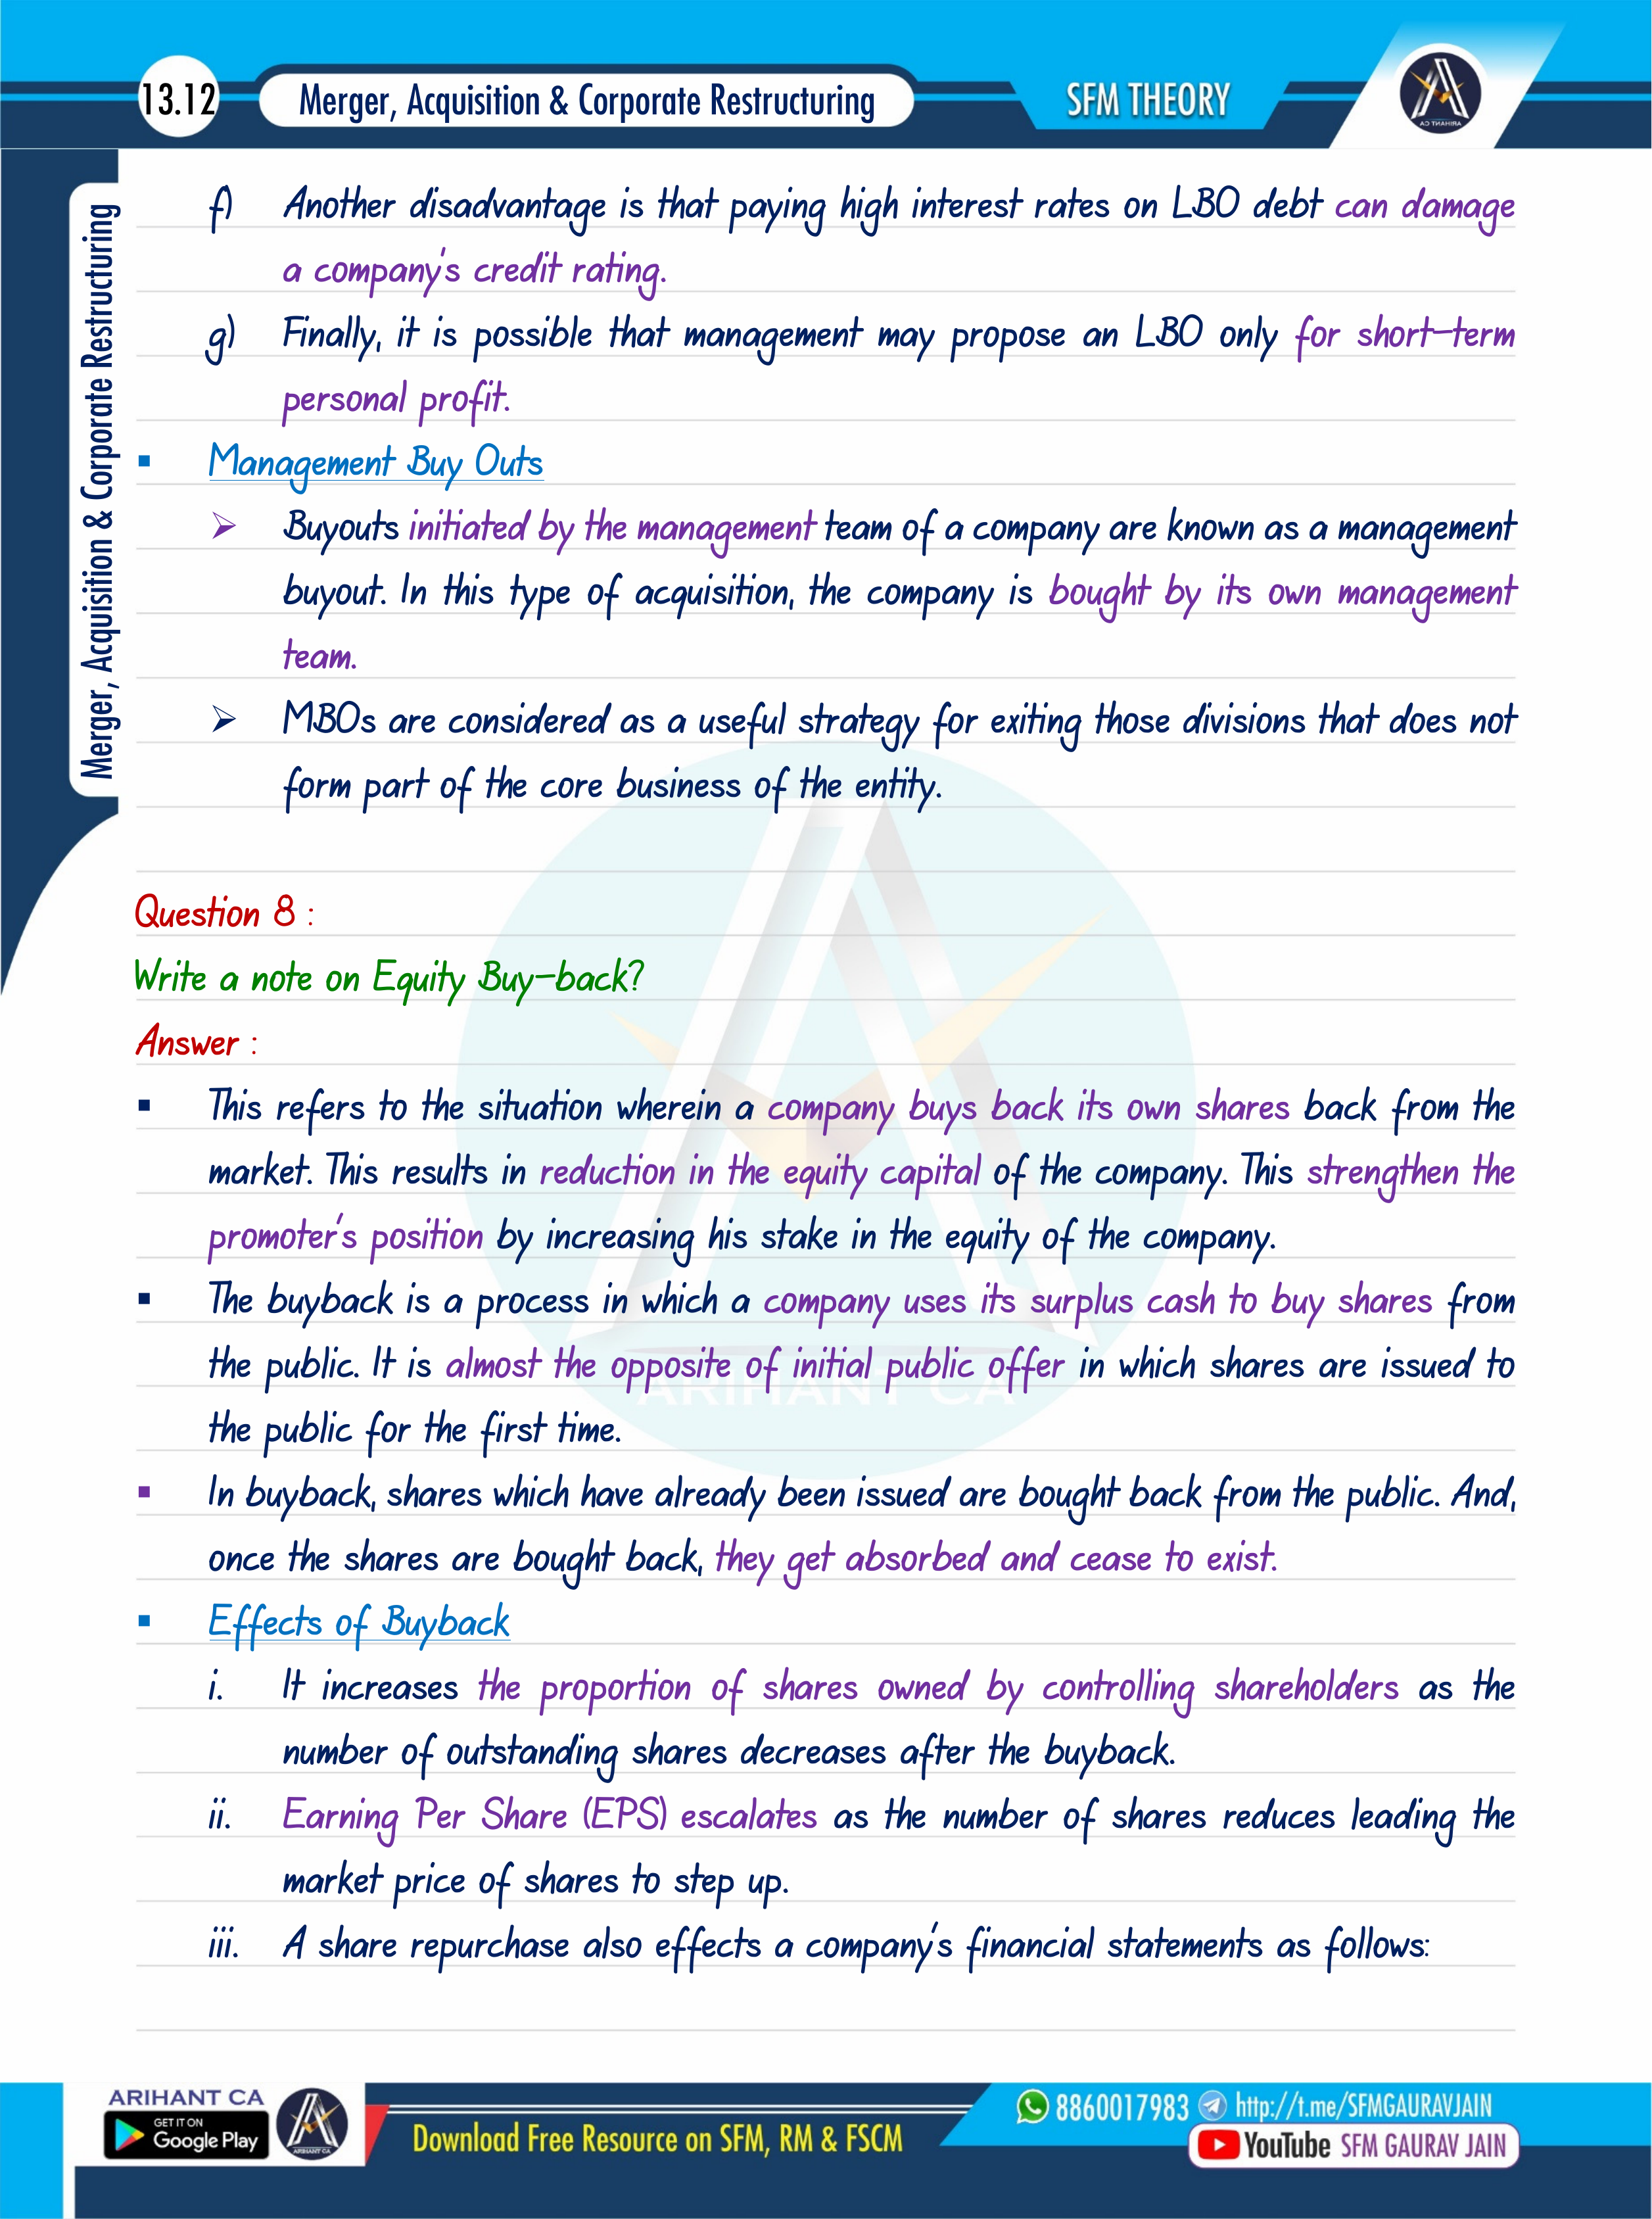 13.12
Merger, Acquisition & Corporate Restructuring
SFM THEORY
ARIHANT CA
Merger, Acquisition & Corporate Restructuring
f) Another disadvantage is that paying high interest rates on LBO debt can damage
a company's credit rating.
g) Finally, it is possible that management may propose an LBO only for short-term
personal profit.
▪ Management Buy Outs
➢ Buyouts initiated by the management team of a company are known as a management
buyout. In this type of acquisition, the company is bought by its own management
team.
➢ MBOs are considered as a useful strategy for exiting those divisions that does not
form part of the core business of the entity.
Question 8 :
Write a note on Equity Buy-back?
Answer :
▪ This refers to the situation wherein a company buys back its own shares back from the
market. This results in reduction in the equity capital of the company. This strengthen the
promoter's position by increasing his stake in the equity of the company.
▪ The buyback is a process in which a company uses its surplus cash to buy shares from
the public. It is almost the opposite of initial public offer in which shares are issued to
the public for the first time.
ARIHANT CA
▪ In buyback, shares which have already been issued are bought back from the public. And,
once the shares are bought back, they get absorbed and cease to exist.
▪ Effects of Buyback
i. It increases the proportion of shares owned by controlling shareholders as the
number of outstanding shares decreases after the buyback.
ii. Earning Per Share (EPS) escalates as the number of shares reduces leading the
market price of shares to step up.
iii. A share repurchase also effects a company's financial statements as follows:
ARIHANT CA
GET IT ON
Google Play
ARIHANT CA
Download Free Resource on SFM, RM & FSCM
8860017983 http://t.me/SFMGAURAVJAIN
YouTube SFM GAURAV JAIN